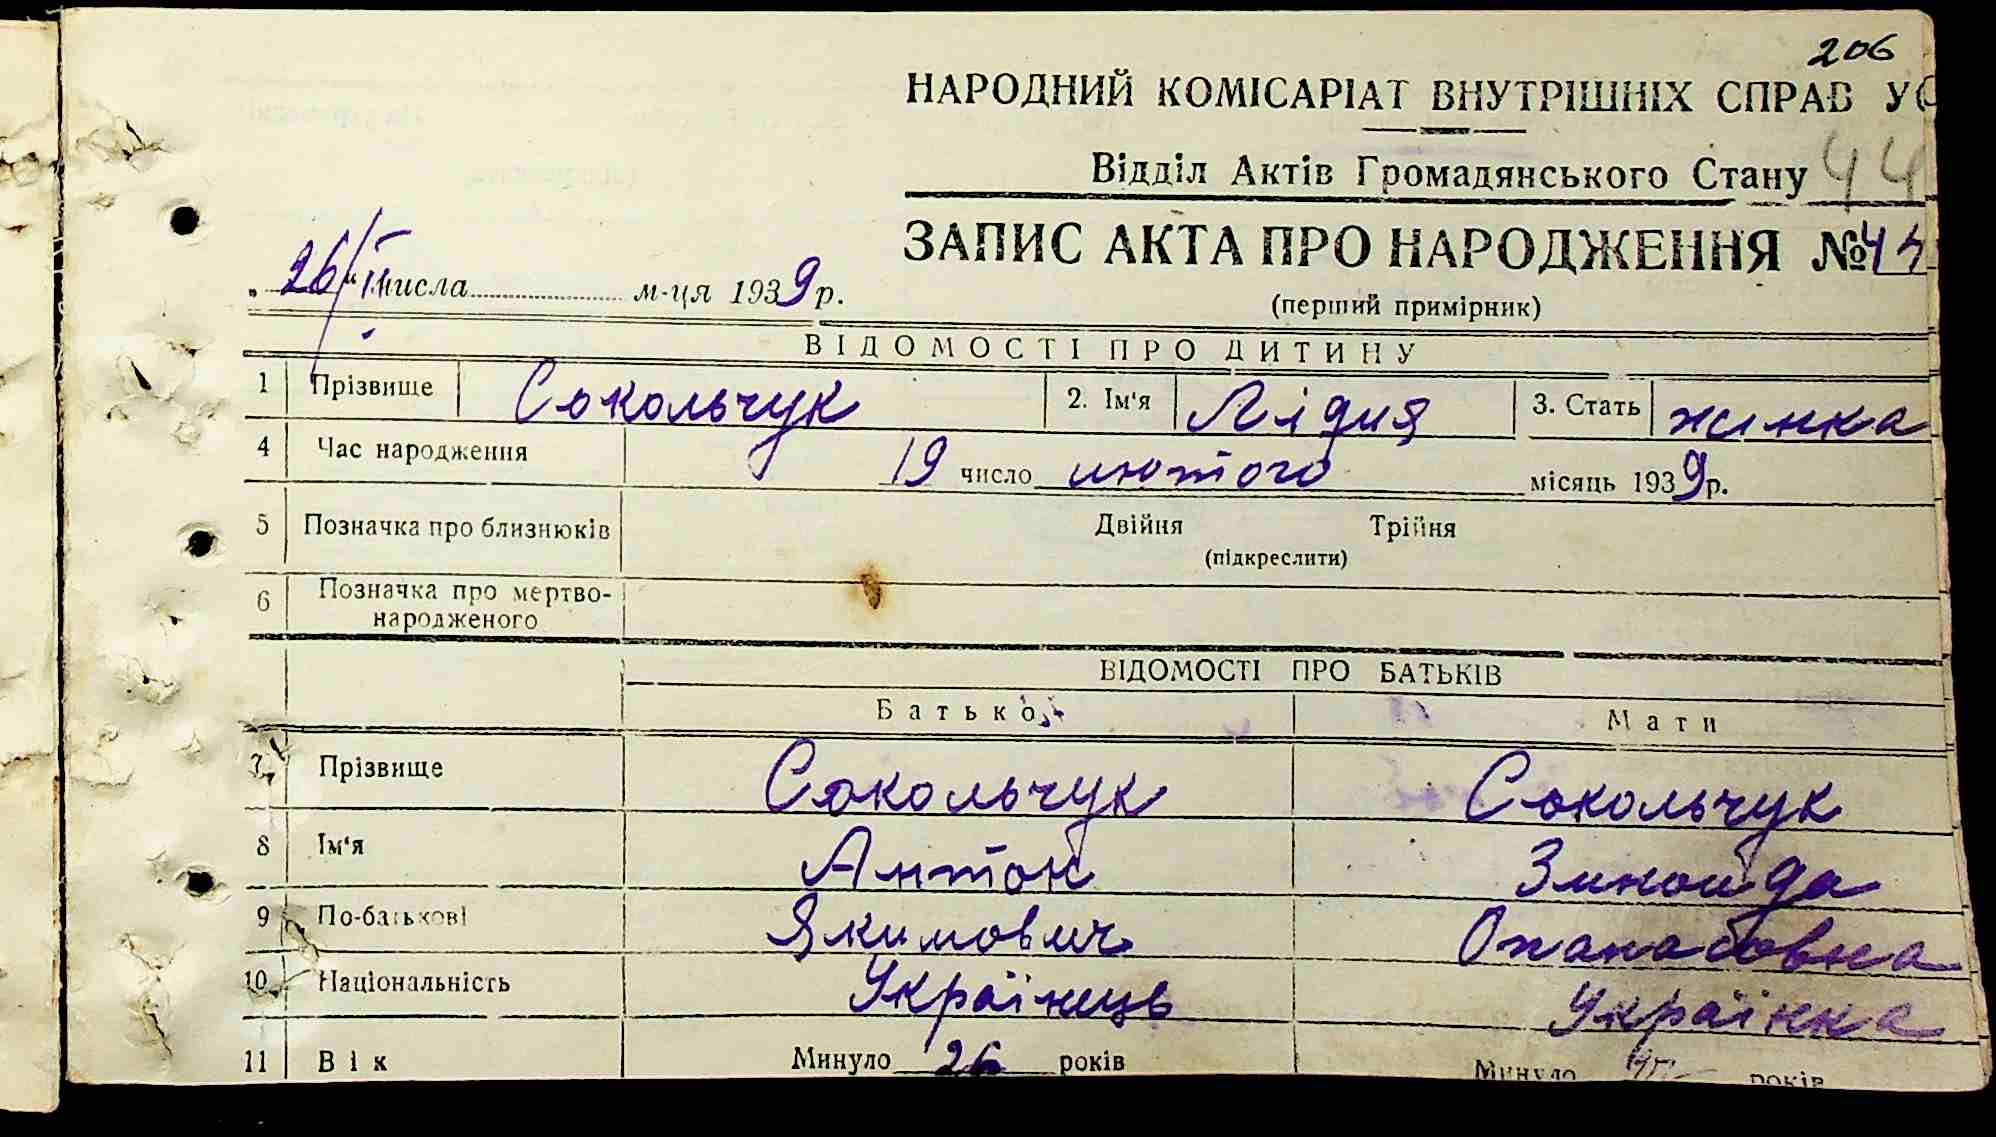 206
НАРОДНИЙ КОМІСАРІАТ ВНУТРІШНІХ СПРАВ
Відділ Актів Громадянського Стану 44
ЗАПИС АКТА ПРО НАРОДЖЕННЯ №
„26/II“ числа м-ця 1939 р.
(перший примірник)
ВІДОМОСТІ ПРО ДИТИНУ
1 Прізвище Сокольчук 2. Ім'я Лідия 3. Стать жинка
4 Час народження 19 число лютого місяць 1939 р.
5 Позначка про близнюків Двійня Трійня
(підкреслити)
6 Позначка про мертво-
народженого
ВІДОМОСТІ ПРО БАТЬКІВ
Батько Мати
7 Прізвище Сокольчук Сокольчук
8 Ім'я Антон Зиноида
9 По-батькові Якимович Опанасовна
10 Національність Українець Українка
11 Вік Минуло 26 років Минуло років